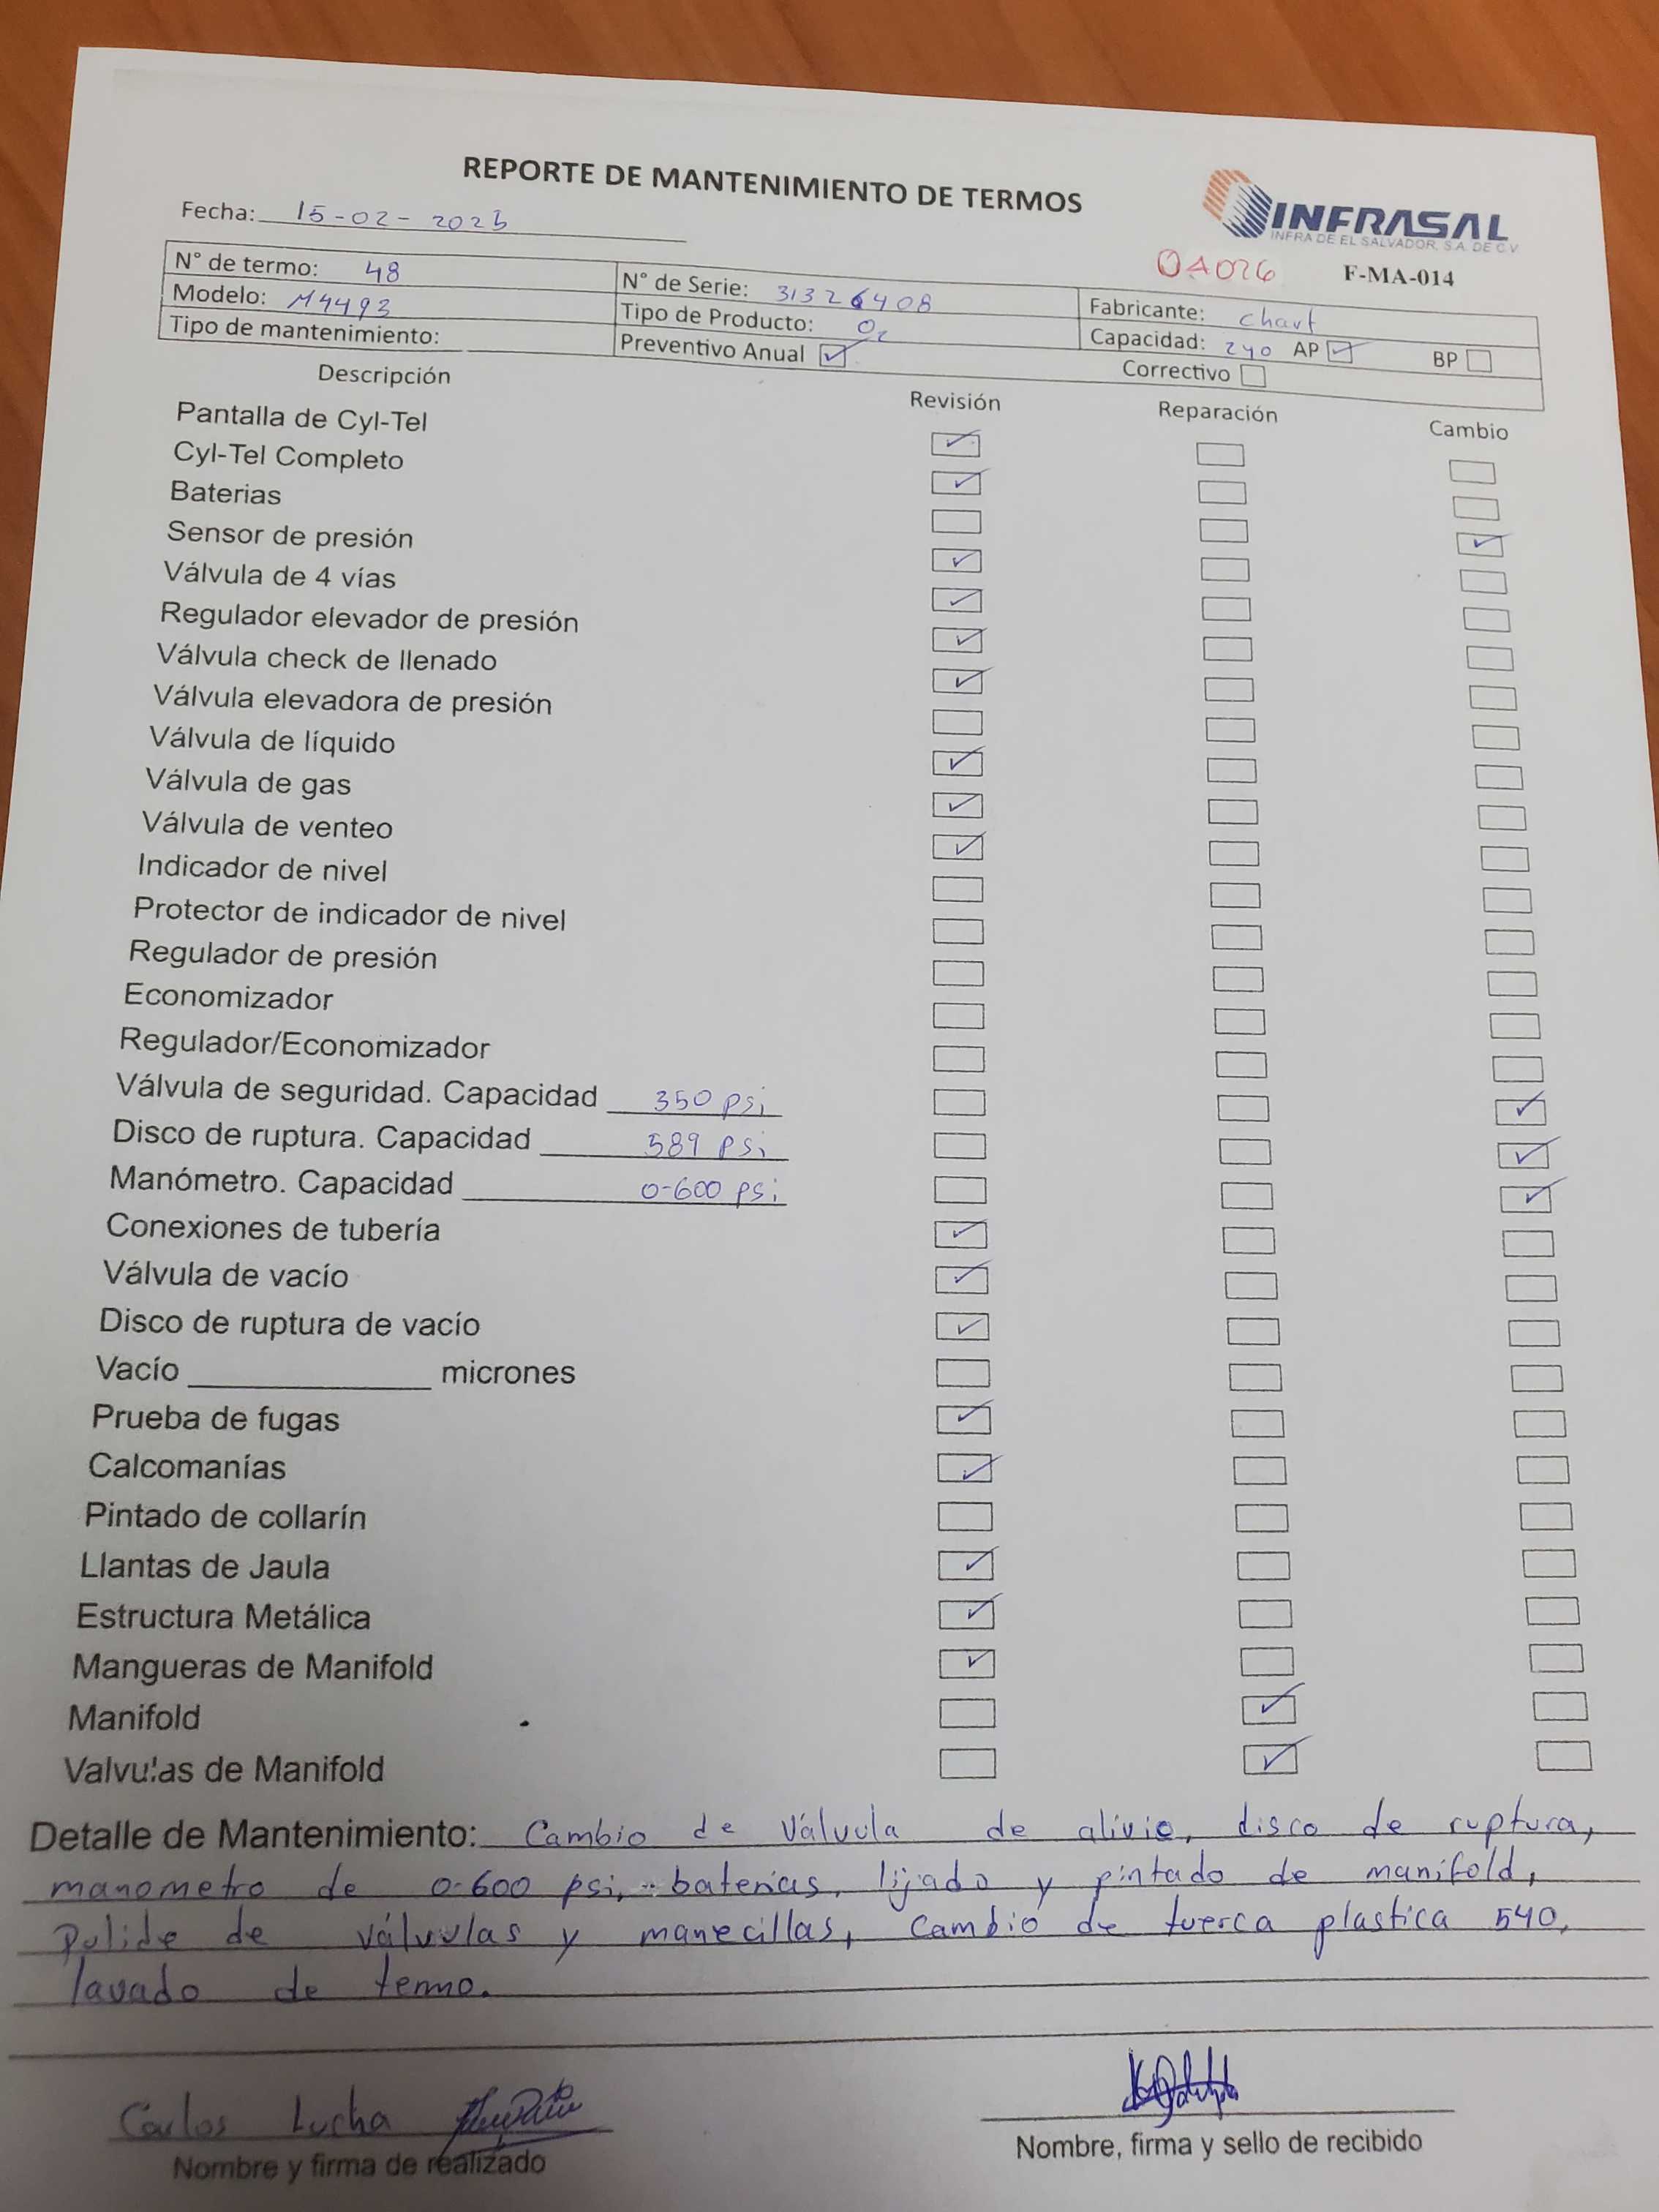 REPORTE DE MANTENIMIENTO DE TERMOS
INFRASAL
INFRA DE EL SALVADOR, S.A. DE C.V
Fecha: 15-02-2025
04026 F-MA-014
N° de termo: 48 N° de Serie: 31326408 Fabricante: chart
Modelo: M4493 Tipo de Producto: O2 Capacidad: 240 AP ✓ BP
Tipo de mantenimiento: Preventivo Anual ✓ Correctivo
Descripción Revisión Reparación Cambio
Pantalla de Cyl-Tel ✓
Cyl-Tel Completo ✓
Baterias ✓
Sensor de presión ✓
Válvula de 4 vías ✓
Regulador elevador de presión ✓
Válvula check de llenado ✓
Válvula elevadora de presión
Válvula de líquido ✓
Válvula de gas ✓
Válvula de venteo ✓
Indicador de nivel
Protector de indicador de nivel
Regulador de presión
Economizador
Regulador/Economizador
Válvula de seguridad. Capacidad 350 psi ✓
Disco de ruptura. Capacidad 589 psi ✓
Manómetro. Capacidad 0-600 psi ✓
Conexiones de tubería ✓
Válvula de vacío ✓
Disco de ruptura de vacío ✓
Vacío ____ micrones
Prueba de fugas ✓
Calcomanías ✓
Pintado de collarín
Llantas de Jaula ✓
Estructura Metálica ✓
Mangueras de Manifold ✓
Manifold ✓
Valvulas de Manifold ✓
Detalle de Mantenimiento: Cambio de Válvula de alivio, disco de ruptura,
manometro de 0-600 psi, baterias, lijado y pintado de manifold,
Pulido de válvulas y manecillas, Cambio de tuerca plastica 540,
lavado de termo.
Carlos Lucha
Nombre y firma de realizado
Nombre, firma y sello de recibido